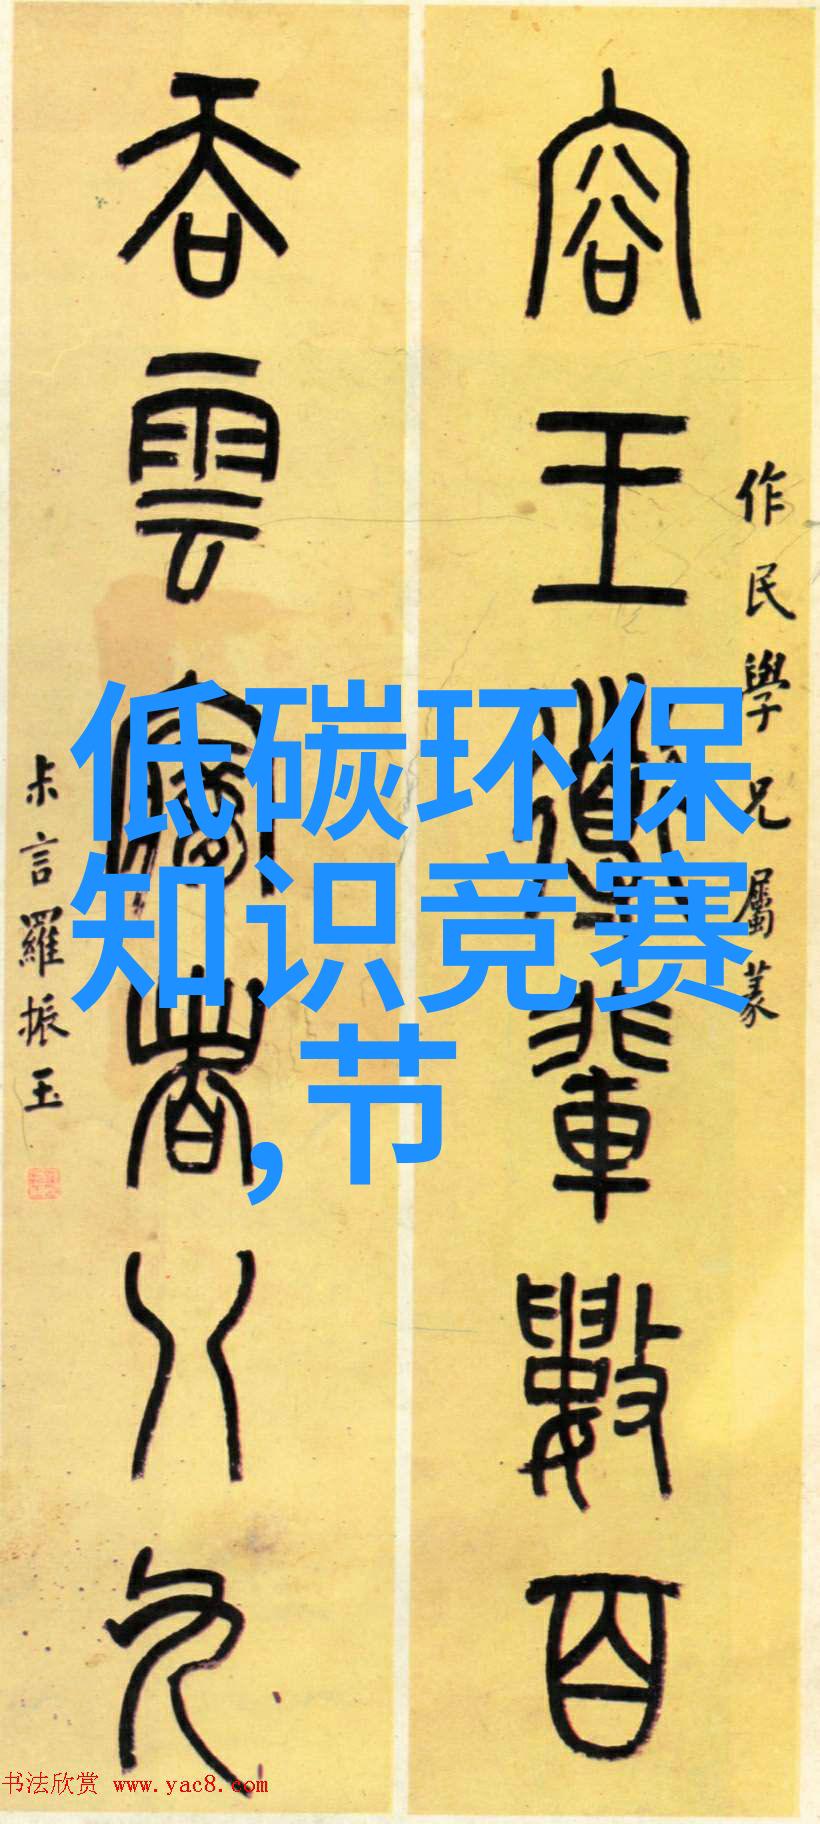 低碳环保
知识竞赛
,节
作民學兄屬篆
容王導輩數百
吞雲夢者八九
尗言羅振玉
书法欣赏 www.yac8.com